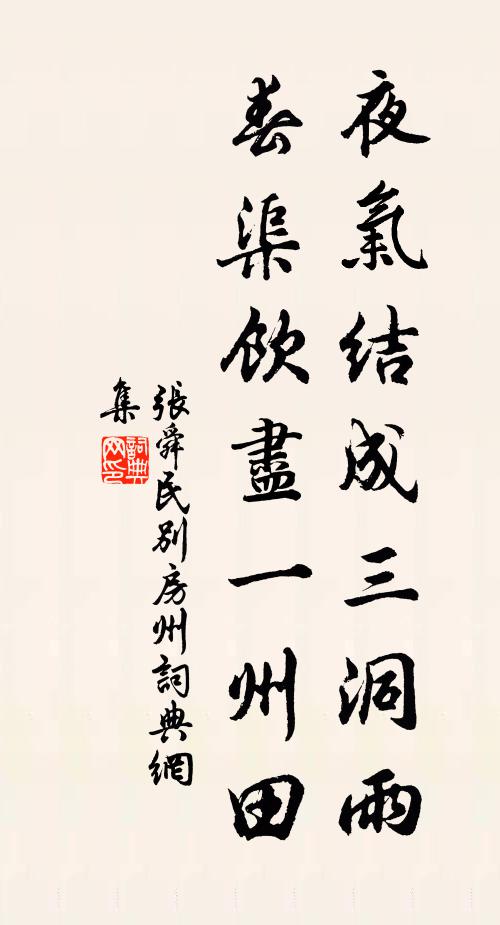 夜氣結成三洞雨
春渠飲盡一州田
張舜民別房州詞典網
集
詞典网印